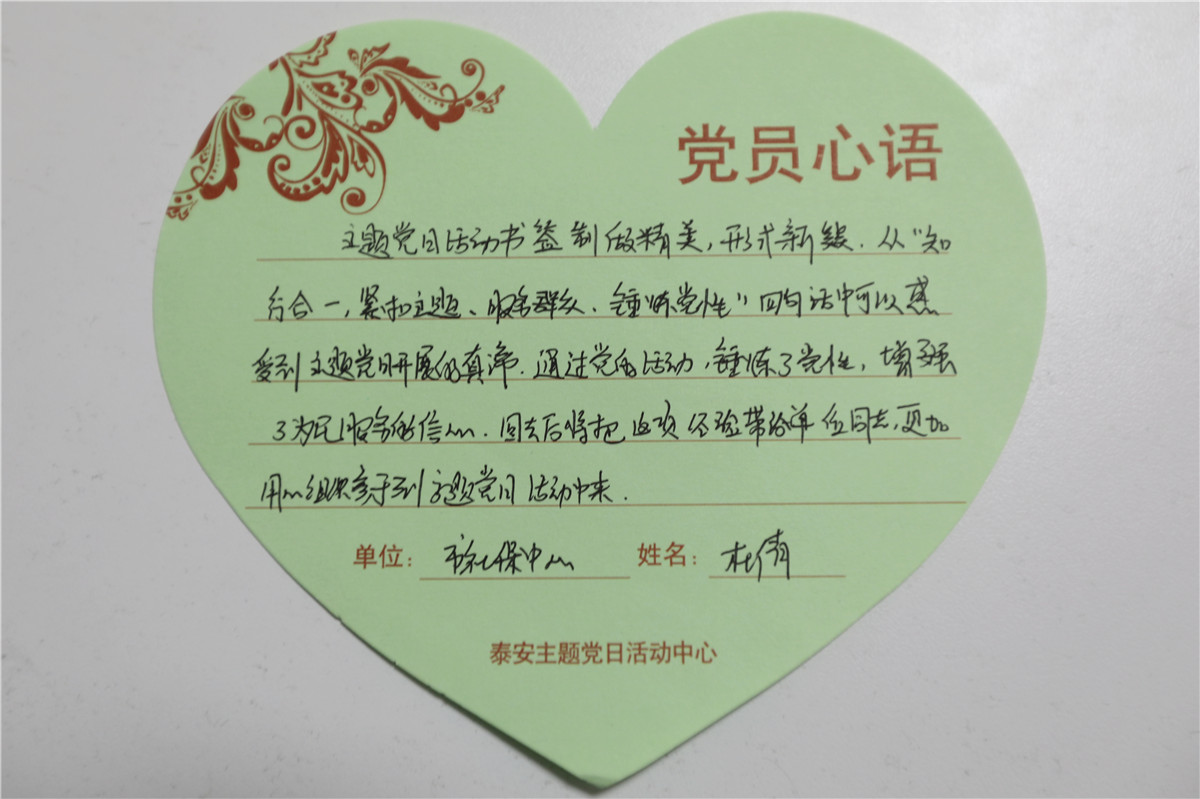 党员心语
主题党日活动书签制做精美，形式新颖．从“知
行合一，紧扣主题、服务群众、锤炼党性”四句话中可以感
受到主题党日开展的真谛．通过党的活动，锤炼了党性，增强
了为民服务的信心．回去后将把这项经验带给单位同志，更加
用心组织参于到主题党日活动中来．
单位：市社保中心 姓名：杜倩
泰安主题党日活动中心